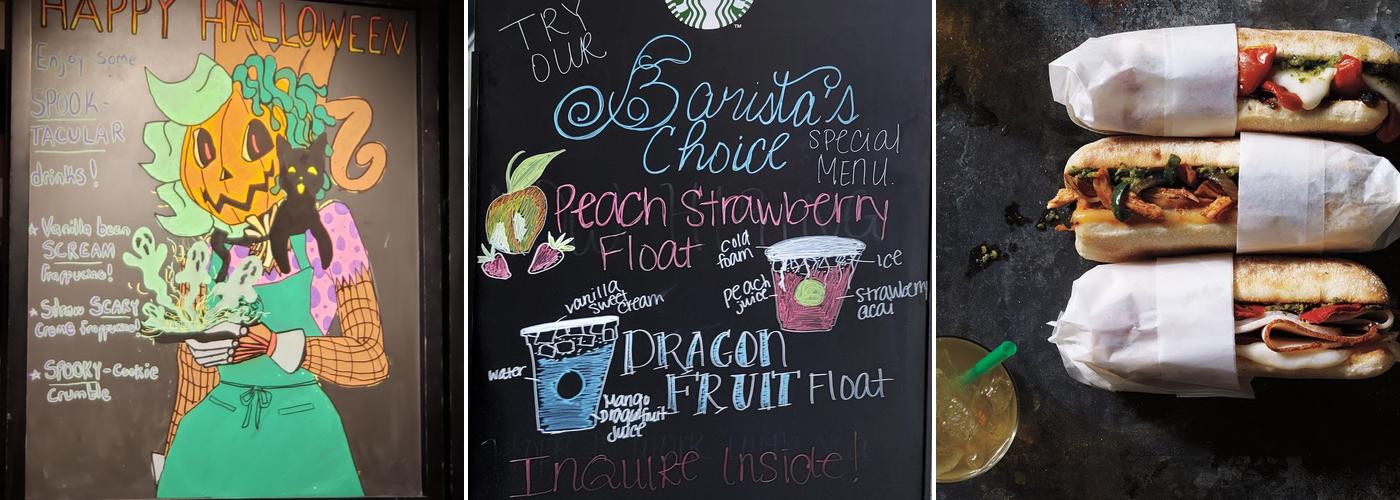 HAPPY HALLOWEEN
Enjoy some
SPOOK-
TACULAR
drinks!
★ Vanilla bean
SCREAM
frappucino!
★ Straw SCARY
Creme frappucino!
★ SPOOKY-Cookie
Crumble
TRY
OUR
Barista's
Choice
special
MENU.
Peach Strawberry
Float
cold
foam
ice
peach
juice
strawberry
acai
vanilla
sweet
cream
water
DRAGON
FRUIT Float
Mango
Dragonfruit
Juice
Inquire Inside!
TM